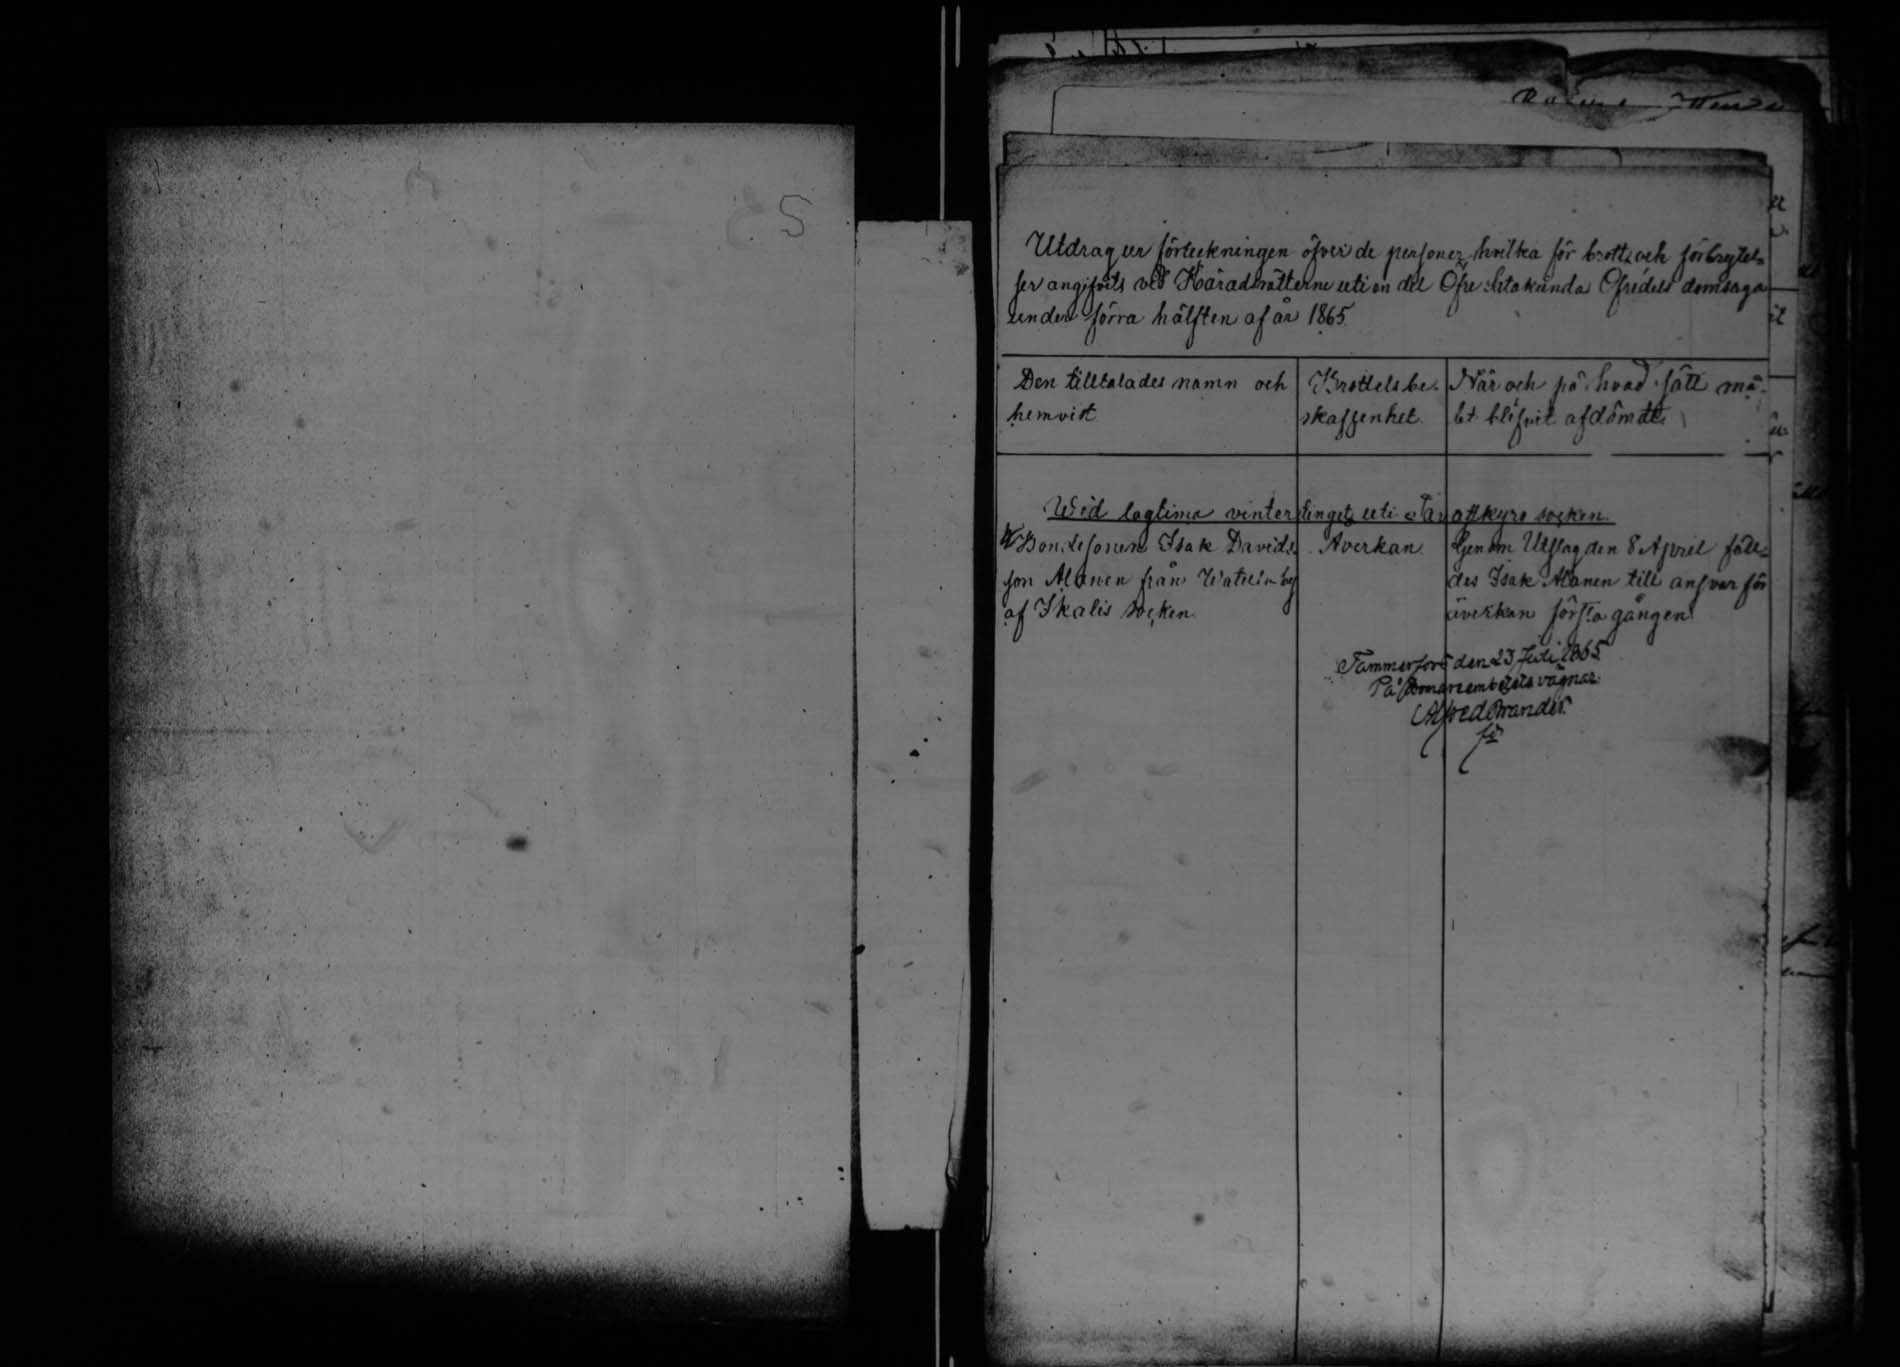 Utdrag ur förteckningen öfver de personer, hvilka för brott och förbrytel=
ser angifvits ved Häradsrätterne uti en del Öfre Satakunda Öfredels domsaga
under förra hälften af år 1865.
Den tilltalades namn och
hemvist.
Brottets be-
skaffenhet.
När och på hvad sätt må-
let blifvit afdömdt.
Wid lagtima vintertinget uti Tavastkyro socken.
Bondesonen Isak Davids-
son Alanen från by
af Ikalis socken.
Averkan.
Genom Utslag den 8 April fäll-
des Isak Alanen till ansvar för
åverkan första gången.
Tammerfors den 23 Juli 1865.
På Domareembetets vägnar:
Alfred Brander.